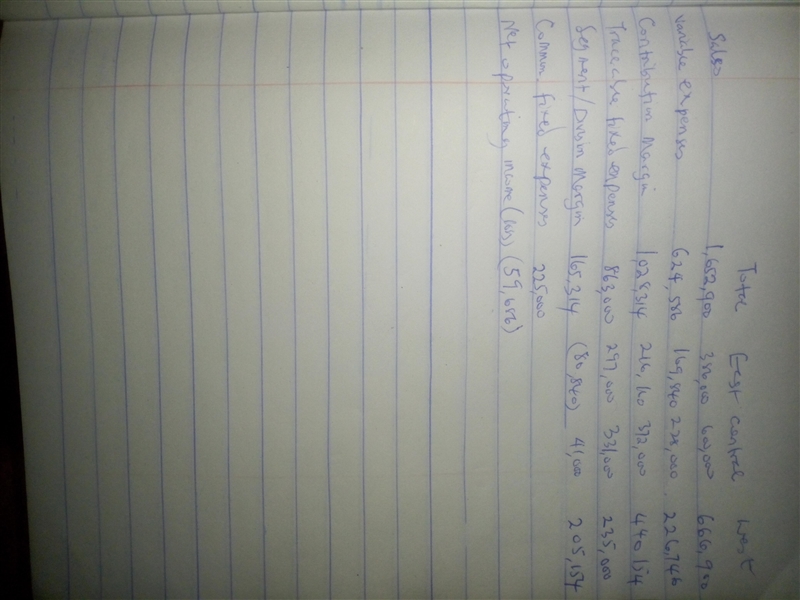 Total East central west
Sales 1,652,900 386,000 600,000 666,900
variable expenses 624,586 169,840 228,000 226,746
Contribution Margin 1,028,314 216,160 372,000 440,154
Traceable fixed expenses 863,000 297,000 331,000 235,000
Segment/Division Margin 165,314 (80,840) 41,000 205,154
Common fixed expenses 225,000
Net operating income (loss) (59,686)